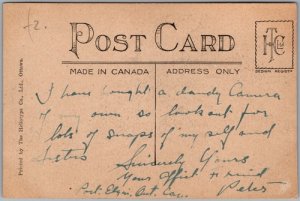 12.
POST CARD
MADE IN CANADA
ADDRESS ONLY
DESIGN REGIST'D
Printed by The Heliotype Co., Ltd., Ottawa.
I have bought a dandy Camera
of my own so look out for
lots of snaps of my self and
Sisters
Sincerely Yours
Your affct friend
Peter
Port Elgin, Ont. Can.